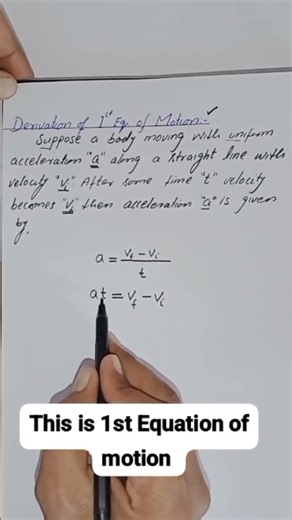 Derivation of 1st Eq. of Motion:-
Suppose a body moving with uniform
acceleration "a" along a straight line with
velocity "vi". After some time "t" velocity
becomes "vf" then acceleration "a" is given
by.
a = vf - vi / t
at = vf - vi
This is 1st Equation of
motion